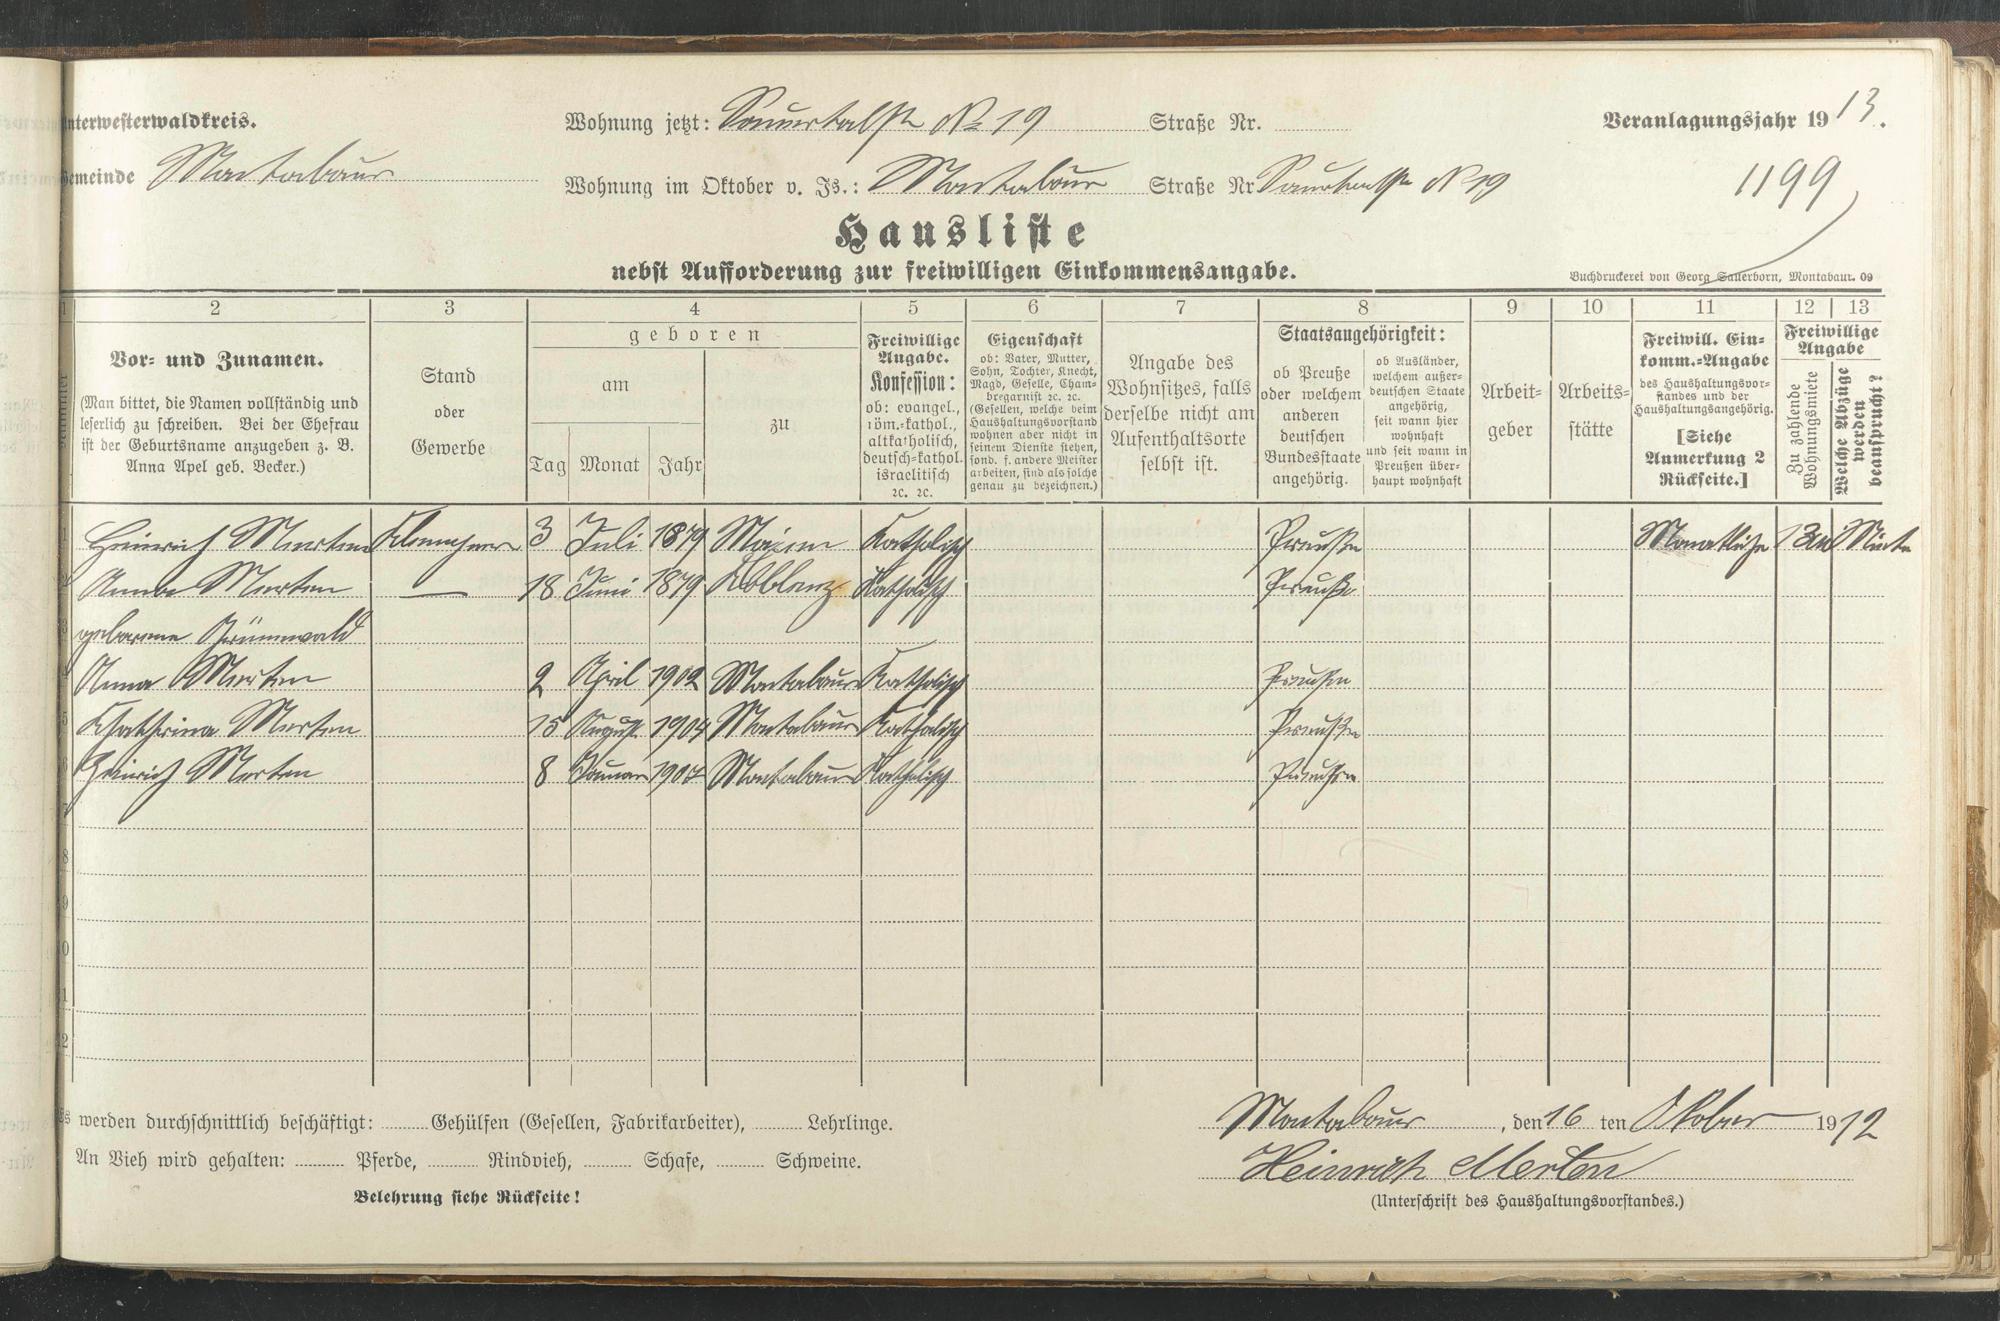 Unterwesterwaldkreis.
Wohnung jetzt: Sauertalstr No 19 Straße Nr.
Veranlagungsjahr 1913.
Gemeinde Montabaur
Wohnung im Oktober v. Js.: Montabaur Straße Nr Sauertalstr No 19
1199
Hausliste
nebst Aufforderung zur freiwilligen Einkommensangabe.
Buchdruckerei von Georg Sauerborn, Montabaur. 09
1 2 3 4 5 6 7 8 9 10 11 12 13
Vor- und Zunamen.
(Man bittet, die Namen vollständig und
leserlich zu schreiben. Bei der Ehefrau
ist der Geburtsname anzugeben z. B.
Anna Apel geb. Becker.)
Stand
oder
Gewerbe
geboren
am
Tag Monat Jahr
zu
Freiwillige
Angabe.
Konfession:
ob: evangel.,
röm.-kathol.,
altkatholisch,
deutsch-kathol.
israelitisch
ꝛc. ꝛc.
Eigenschaft
ob: Vater, Mutter,
Sohn, Tochter, Knecht,
Magd, Geselle, Cham-
bregarnist ꝛc. ꝛc.
(Gesellen, welche beim
Haushaltungsvorstand
wohnen aber nicht in
seinem Dienste stehen,
sond. f. andere Meister
arbeiten, sind als solche
genau zu bezeichnen.)
Angabe des
Wohnsitzes, falls
derselbe nicht am
Aufenthaltsorte
selbst ist.
Staatsangehörigkeit:
ob Preuße
oder welchem
anderen
deutschen
Bundesstaate
angehörig.
ob Ausländer,
welchem außer-
deutschen Staate
angehörig,
seit wann hier
wohnhaft
und seit wann in
Preußen über-
haupt wohnhaft
Arbeit-
geber
Arbeits-
stätte
Freiwill. Ein-
komm.-Angabe
des Haushaltungsvor-
standes und der
Haushaltungsangehörig.
[Siehe
Anmerkung 2
Rückseite.]
Freiwillige
Angabe
Zu zahlende
Wohnungsmiete
Welche Abzüge
werden
beansprucht?
1 Heinrich Merten Klempner 3 Juli 1879 Katholisch Preuße Monatliche 13 M Miete
2 Anna Merten — 18 Juni 1879 Koblenz Katholisch Preuße
3 geborene Grünewald
4 Anna Merten 2 April 1902 Montabaur Katholisch Preußen
5 Khatharina Merten 15 August 1904 Montabaur Katholisch Preußen
6 Heinrich Merten 8 Januar 1907 Montabaur Katholisch Preußen
7
8
9
10
11
12
Es werden durchschnittlich beschäftigt: Gehülfen (Gesellen, Fabrikarbeiter), Lehrlinge.
Montabaur, den 16 ten Oktober 1912
An Vieh wird gehalten: Pferde, Rindvieh, Schafe, Schweine.
Heinrich Merten
Belehrung siehe Rückseite!
(Unterschrift des Haushaltungsvorstandes.)